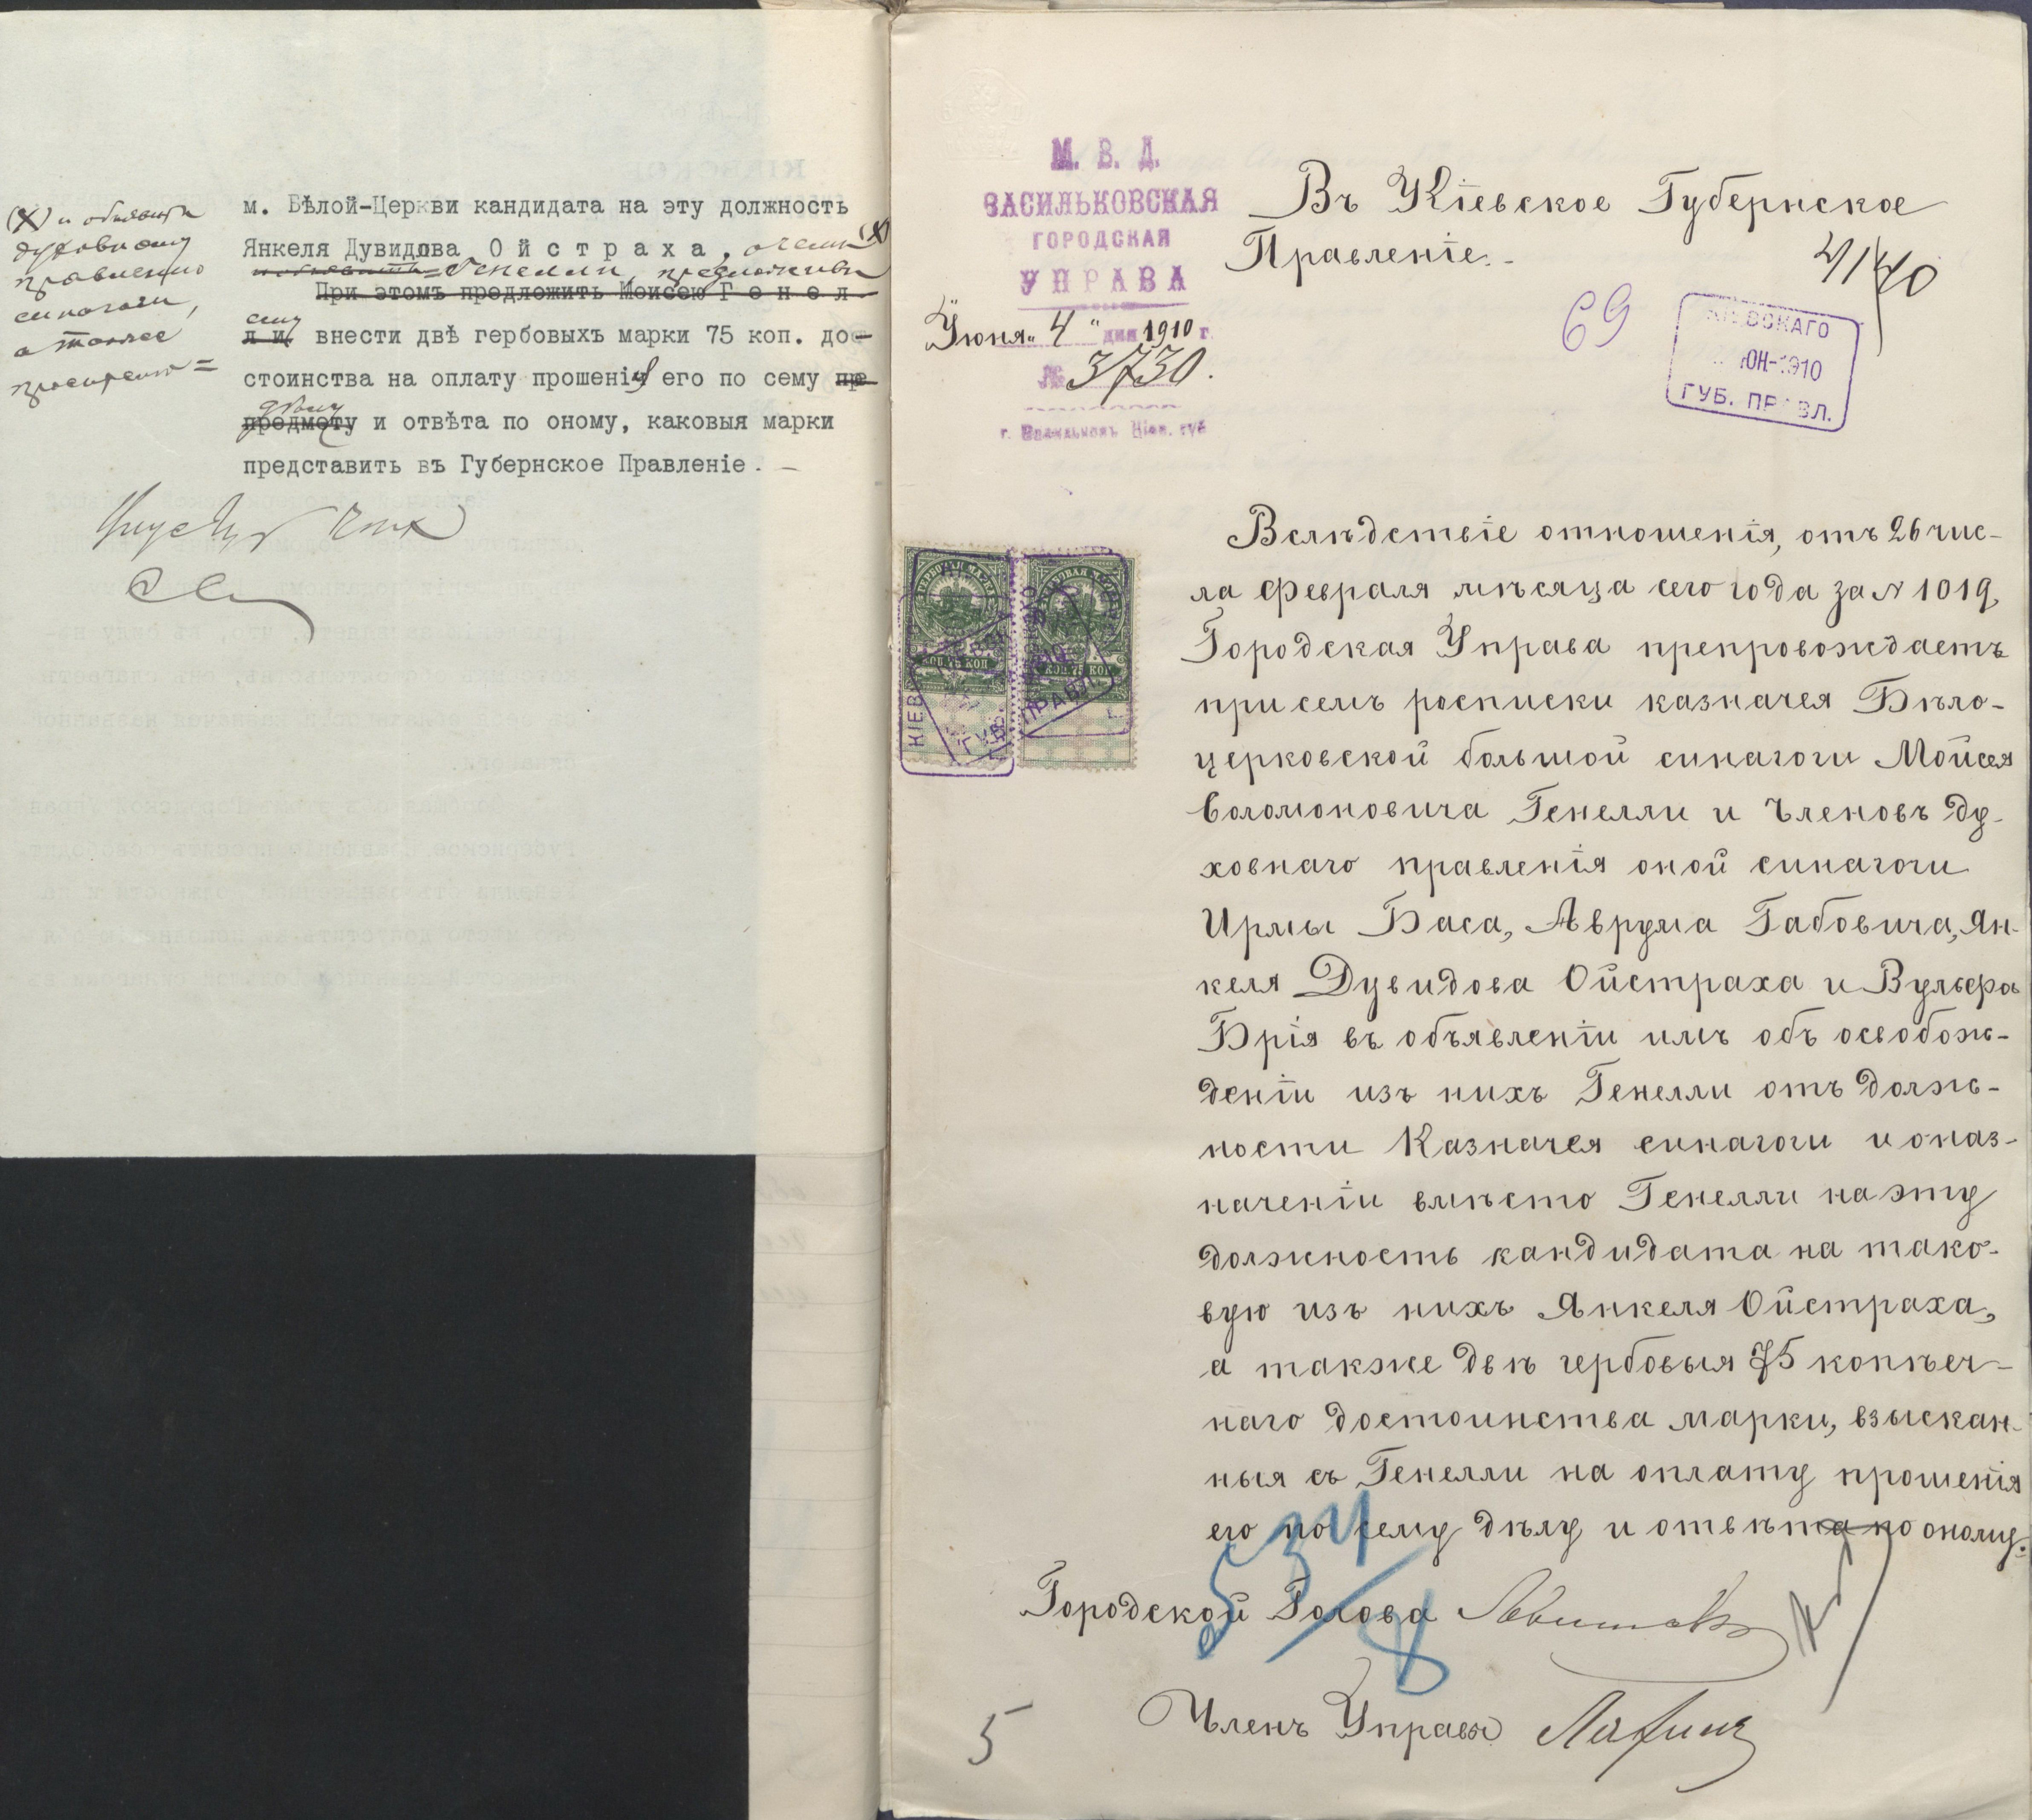 м. Бѣлой-Церкви кандидата на эту должность
Янкеля Дувидова Ойстраха, о чемъ (X)
объявить Генелли, предложивъ
При этомъ предложить Моисею Генел-
ему
ли внести двѣ гербовыхъ марки 75 коп. до-
стоинства на оплату прошенія его по сему пре
дѣлу
предмету и отвѣта по оному, каковыя марки
представить въ Губернское Правленіе. –
(X) и объявить
духовному
правленію
синагоги,
а также
М. В. Д.
ВАСИЛЬКОВСКАЯ
ГОРОДСКАЯ
УПРАВА
Іюня „4“ дня 1910 г.
№ 3730.
г. Васильковъ Кіев. губ.
Въ Кіевское Губернское
Правленіе.
69
КІЕВСКАГО
ІЮН-1910
ГУБ. ПРАВЛ.
ГЕРБОВАЯ МАРКА
КОП 75 КОП
ГЕРБОВАЯ МАРКА
КОП 75 КОП
Вслѣдствіе отношенія, отъ 26 чис-
ла февраля мѣсяца сего года за № 1019,
Городская Управа препровождаетъ
при семъ росписки казначея Бѣло-
церковской большой синагоги Мойсея
Соломоновича Генелли и Членовъ Ду-
ховнаго правленія оной синагоги
Ирмы Баса, Аврума Габовича, Ян-
келя Дувидова Ойстраха и Вульфа
Брія въ объявленіи имъ объ освобож-
деніи изъ нихъ Генелли отъ долж-
ности Казначея синагоги и о наз-
наченіи вмѣсто Генелли на эту
должность кандидата на тако-
вую изъ нихъ Янкеля Ойстраха,
а также двѣ гербовыя 75 копѣеч-
наго достоинства марки, взыскан-
ныя съ Генелли на оплату прошенія
его по сему дѣлу и отвѣта по оному.
534/8
Городской Голова
Членъ Управы
5